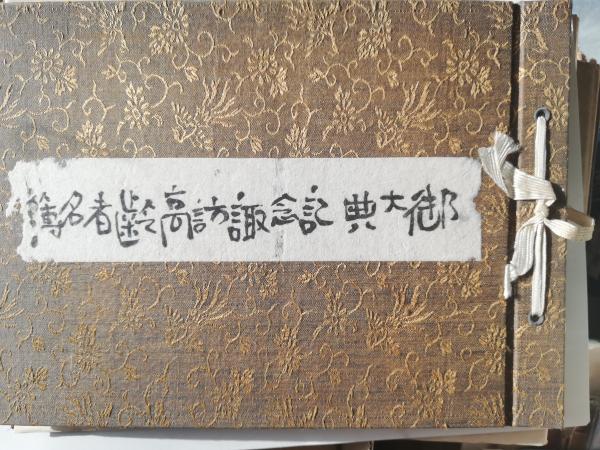 御大典記念諏訪高齢者名簿